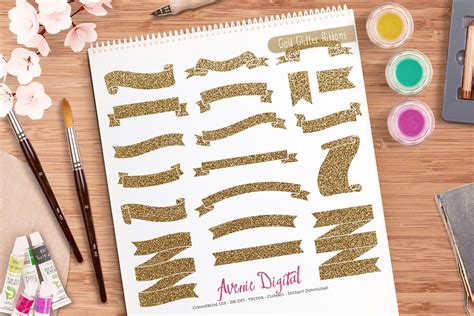 Gold Glitter Ribbons
Avenie Digital
Commercial Use - 300 DPI - Vector - Clipart - Instant Download